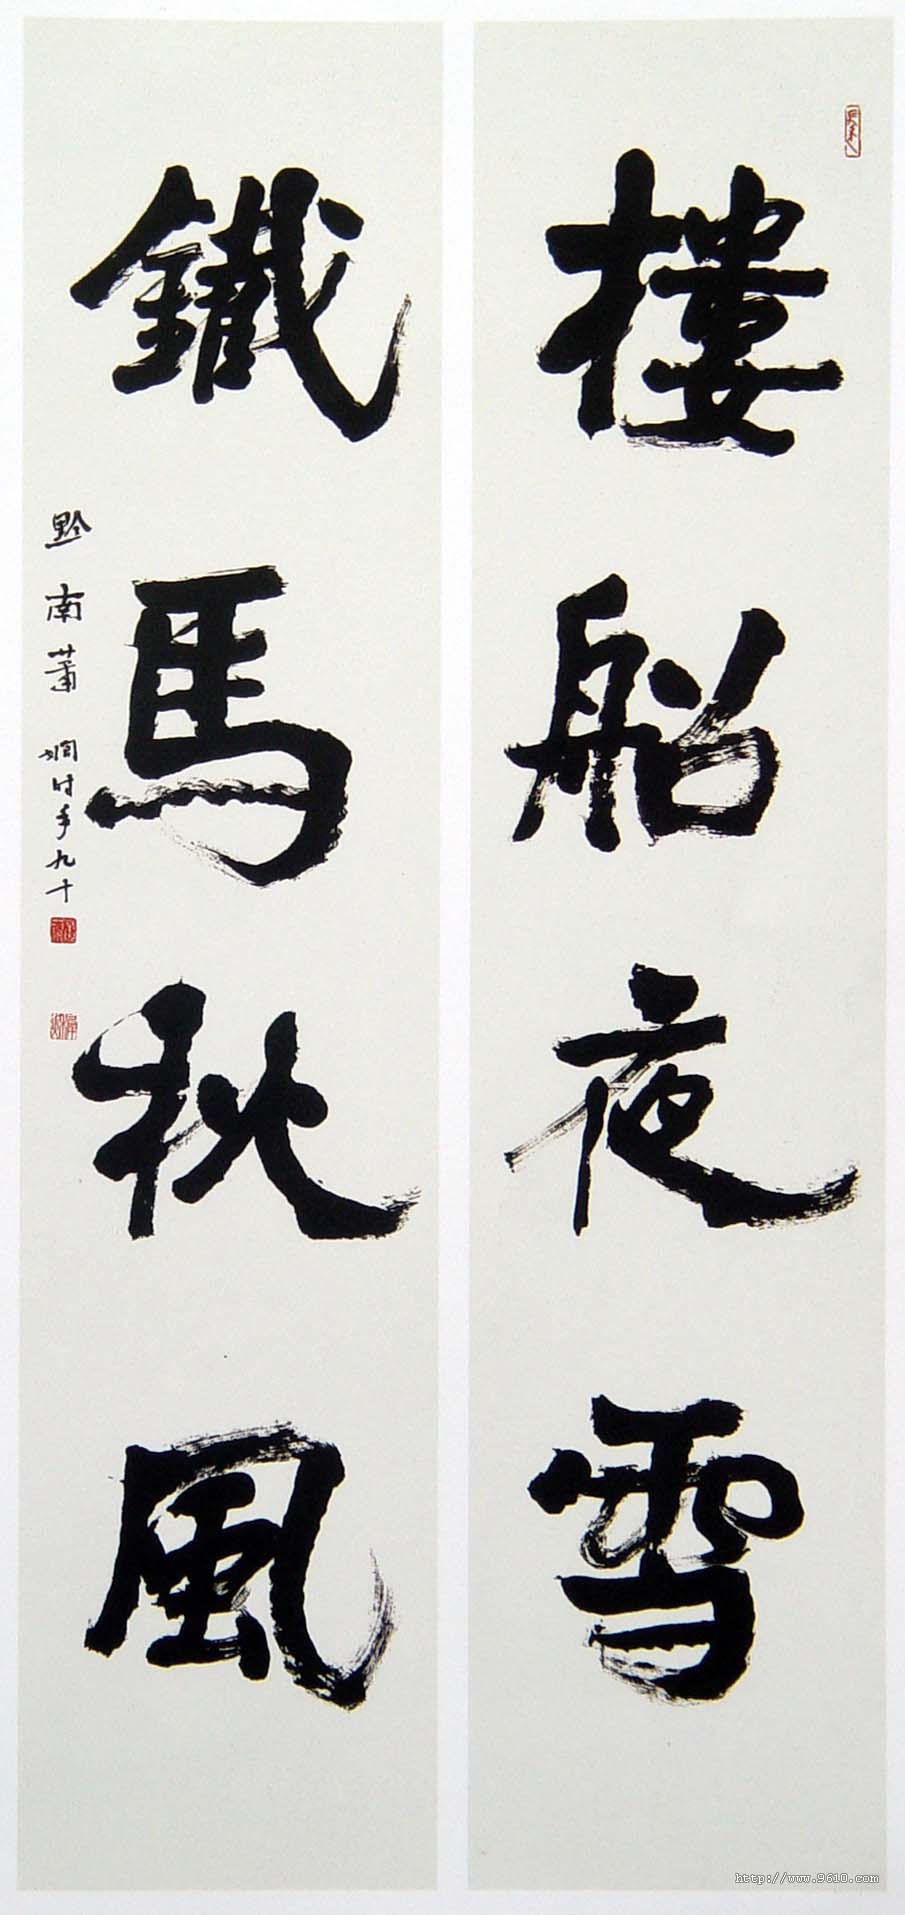 樓船夜雪
鐵馬秋風
黔南蕭嫻時年九十
http://www.9610.com